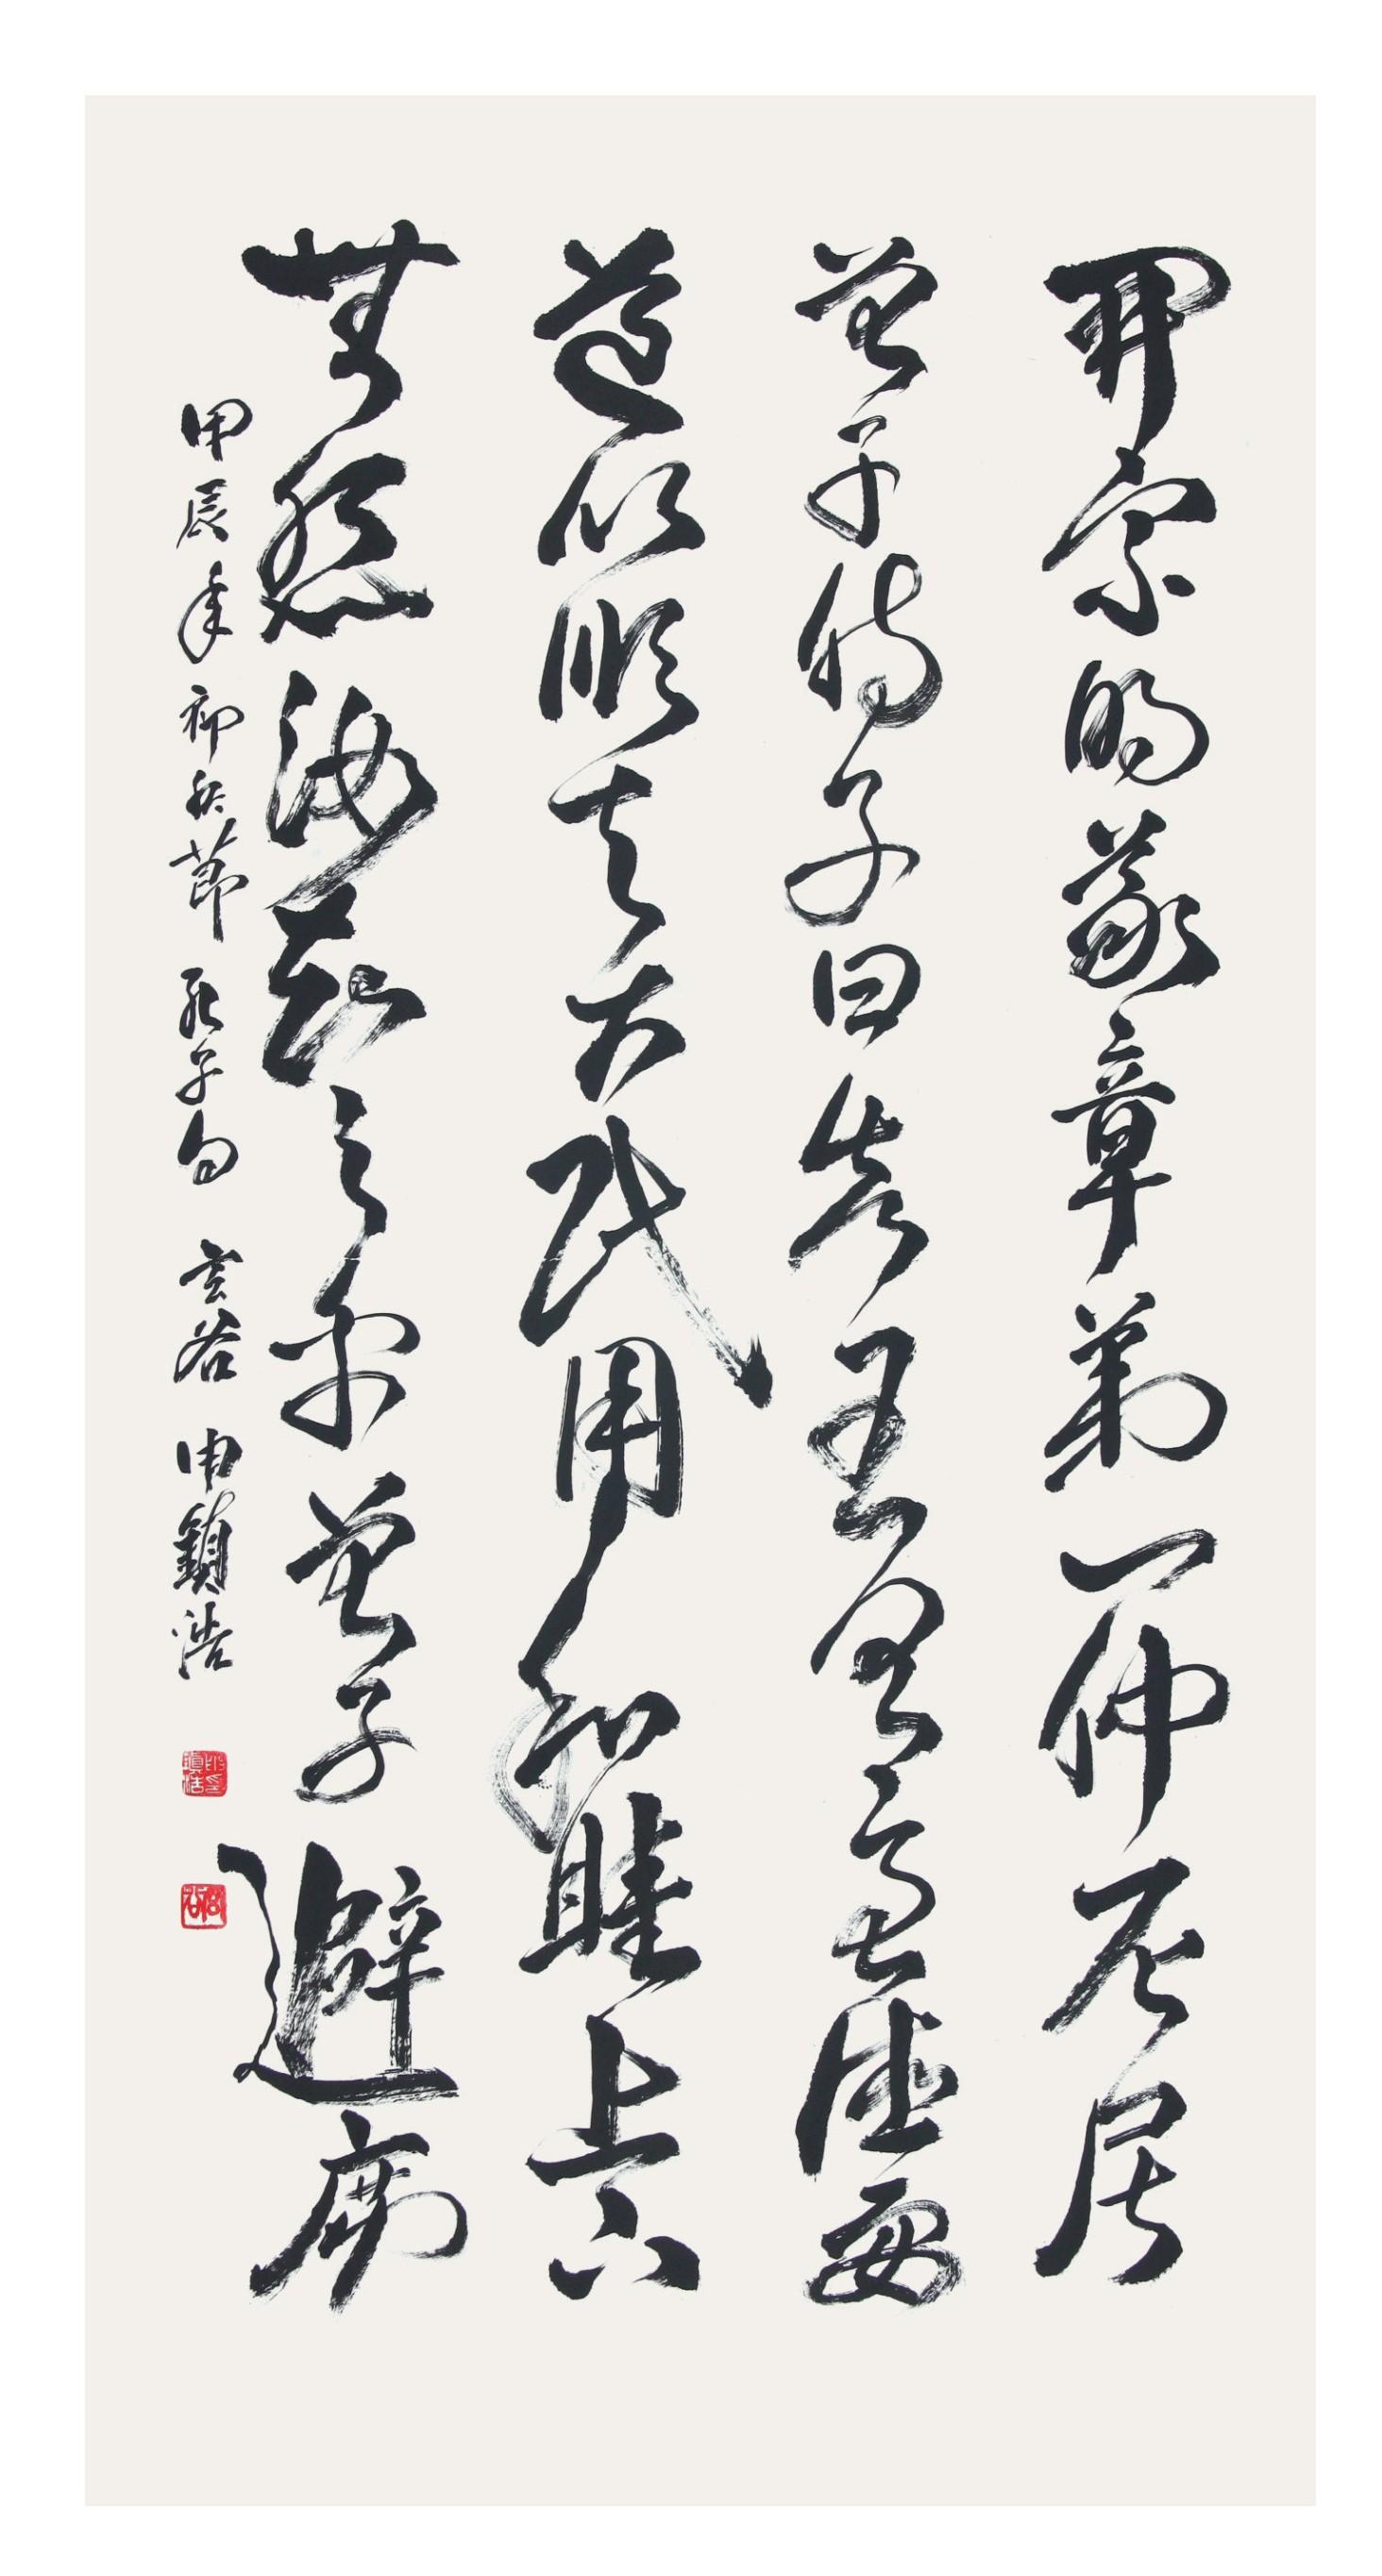 開宗明義章第一仲尼居
曾子侍子曰先王有至德要
道以順天下民用和睦上下
無怨汝知之乎曾子避席
甲辰年初秋節孔子句 雲谷 申鎮浩